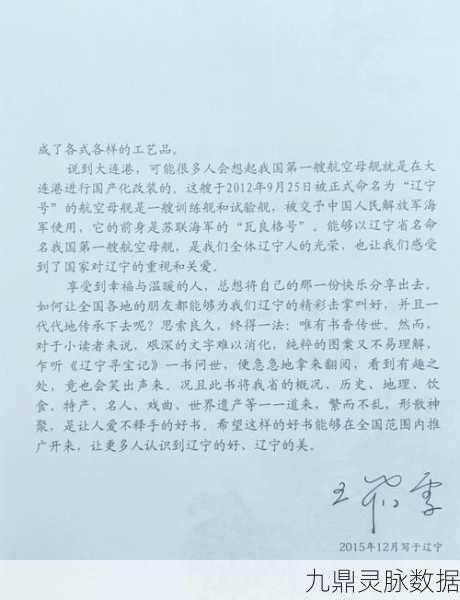 成了各式各样的工艺品。
说到大连港，可能很多人会想起我国第一艘航空母舰就是在大
连港进行国产化改装的。这艘于2012年9月25日被正式命名为“辽宁
号”的航空母舰是一艘训练舰和试验舰，被交予中国人民解放军海
军使用，它的前身是苏联海军的“瓦良格号”。能够以辽宁省名命
名我国第一艘航空母舰，是我们全体辽宁人的光荣，也让我们感受
到了国家对辽宁的重视和关爱。
享受到幸福与温暖的人，总想将自己的那一份快乐分享出去。
如何让全国各地的朋友都能够为我们辽宁的精彩击掌叫好，并且一
代代地传承下去呢？思索良久，终得一法：唯有书香传世。然而，
对于小读者来说，艰深的文字难以消化，纯粹的图案又不易理解，
乍听《辽宁寻宝记》一书问世，便急急地拿来翻阅，看到有趣之
处，竟也会笑出声来。况且此书将我省的概况、历史、地理、饮
食、特产、名人、戏曲、世界遗产等一一道来，繁而不乱，形散神
聚，是让人爱不释手的好书。希望这样的好书能够在全国范围内推
广开来，让更多人认识到辽宁的好、辽宁的美。
2015年12月写于辽宁
九鼎灵脉数据